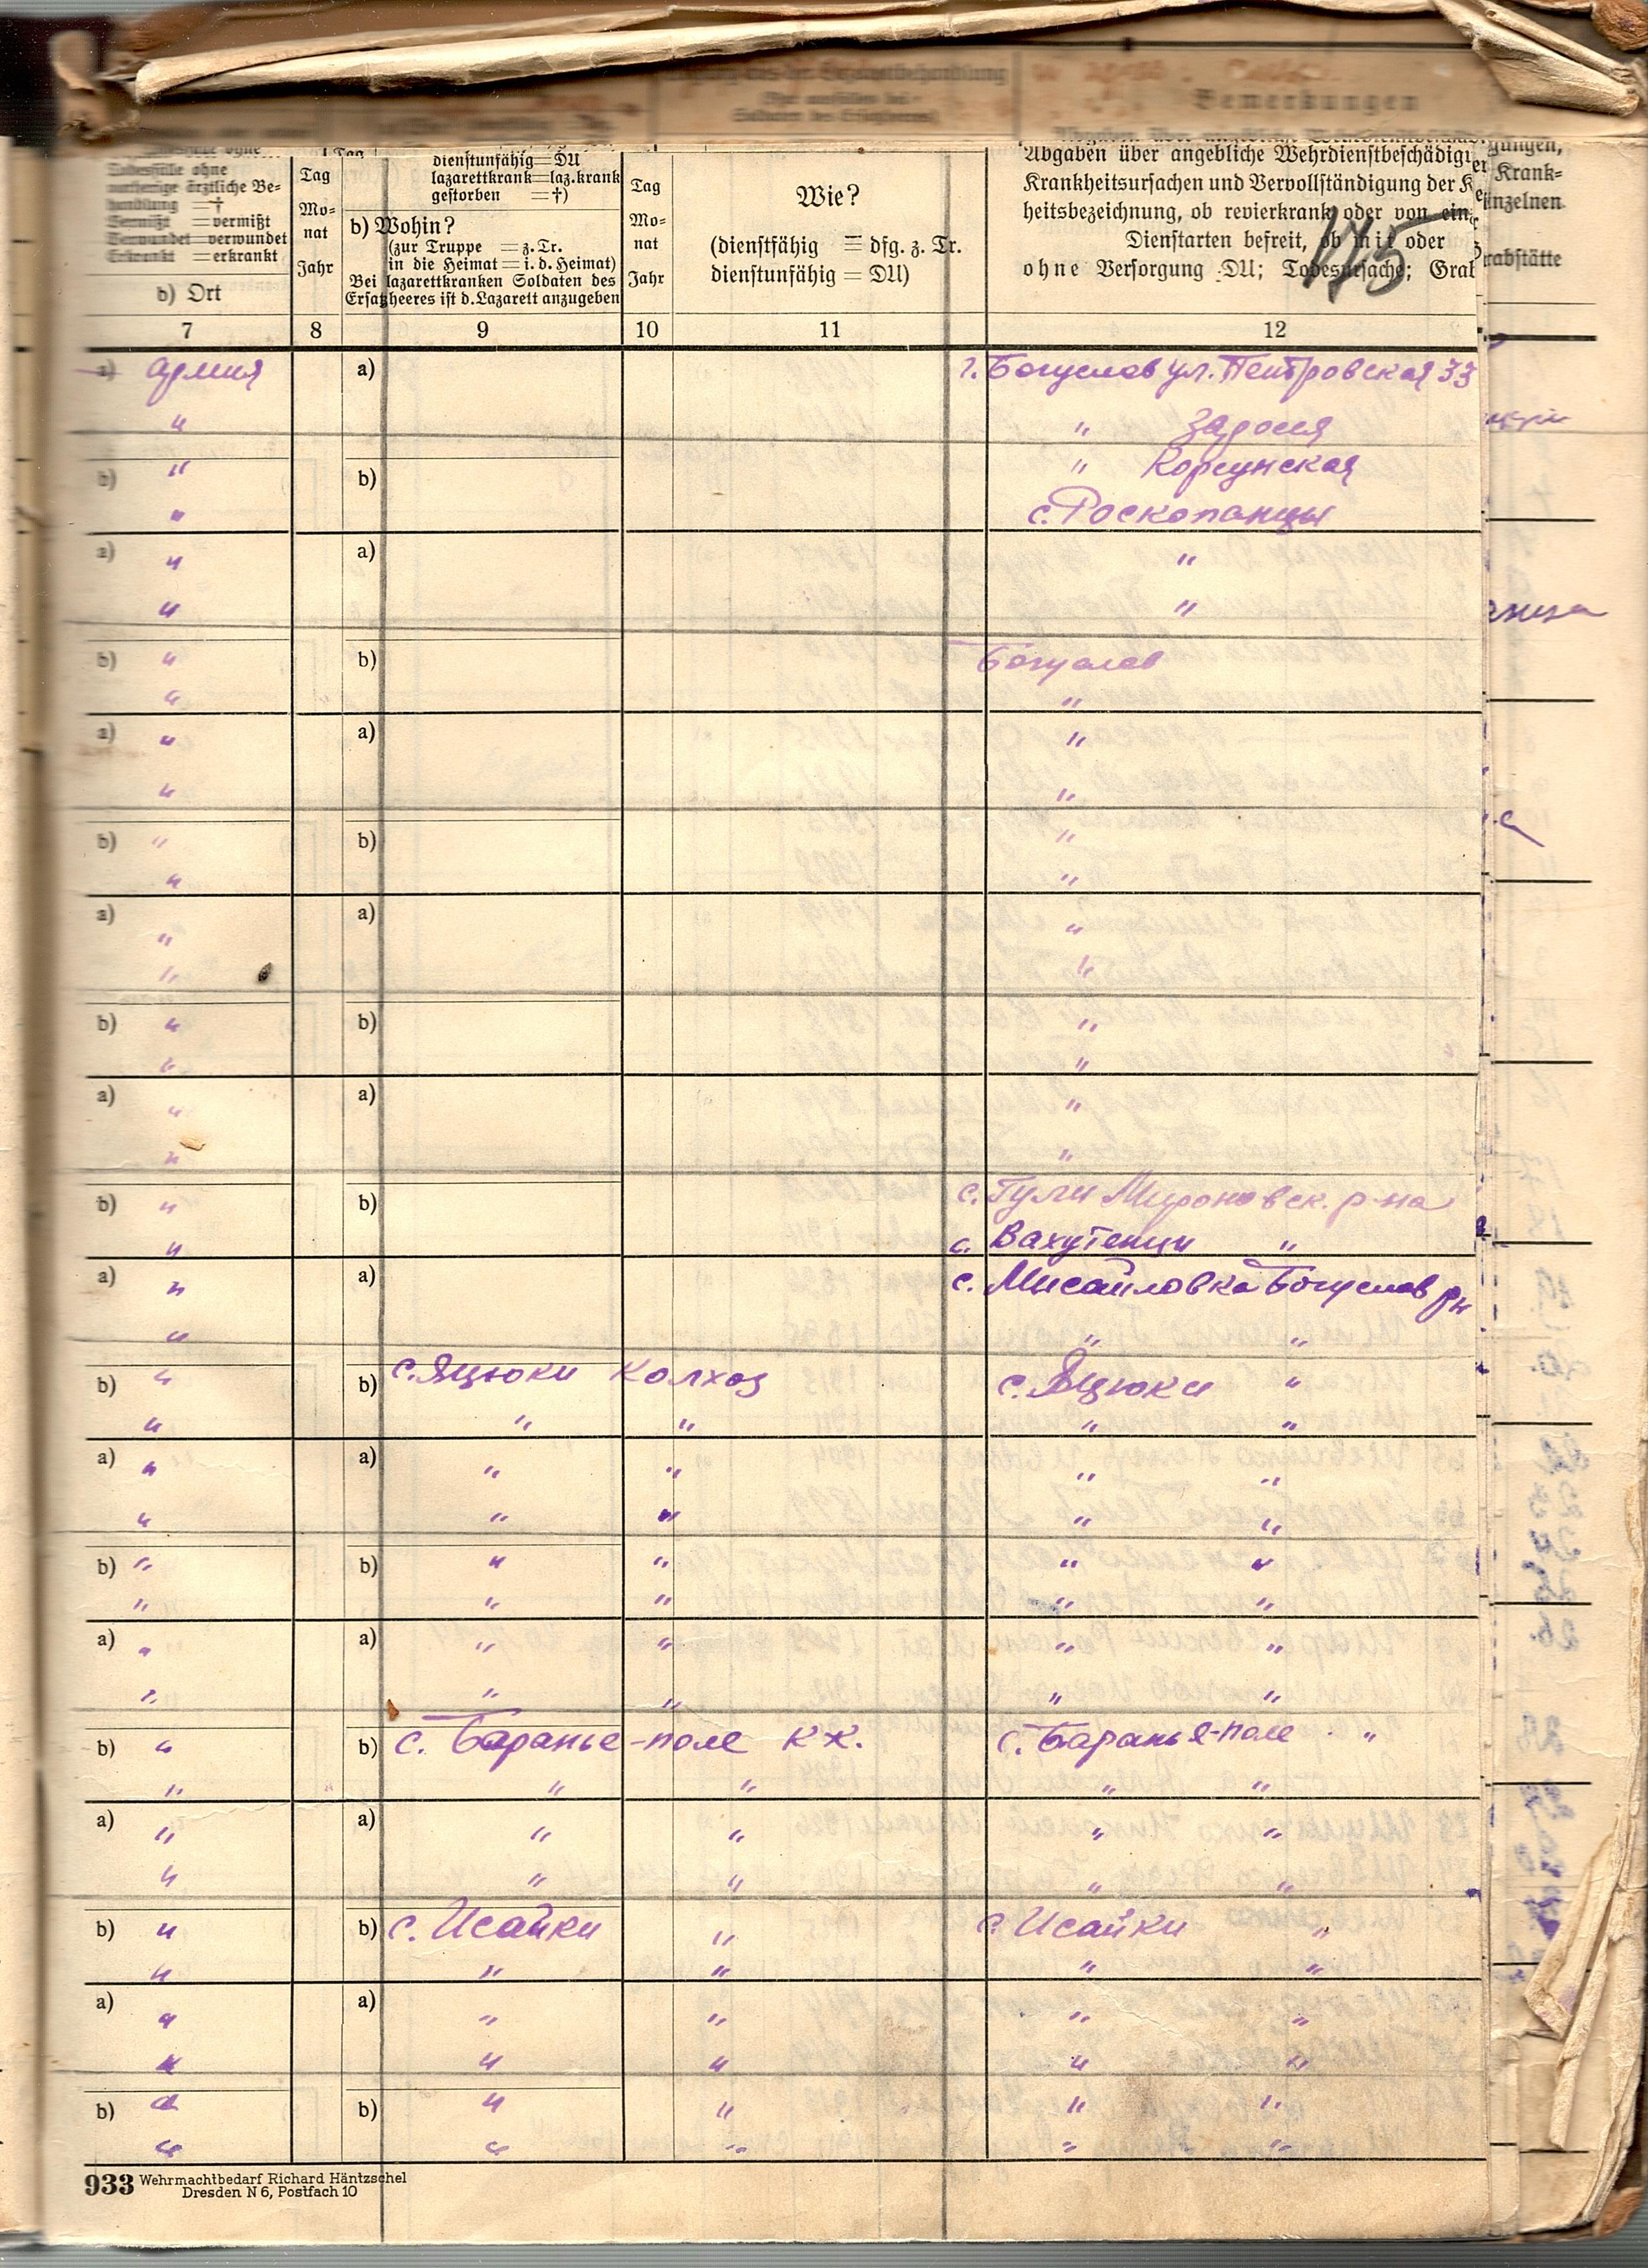 Bemerkungen
Todesfälle ohne
vorherige ärztliche Be-
handlung =†
Vermißt =vermißt
Verwundet=verwundet
Erkrankt =erkrankt
b) Ort
Tag
Mo-
nat
Jahr
dienstunfähig=DU
lazarettkrank=laz.krank
gestorben =†)
b) Wohin?
(zur Truppe =z.Tr.
in die Heimat=i.d.Heimat)
Bei lazarettkranken Soldaten des
Ersatzheeres ist d.Lazarett anzugeben
Tag
Mo-
nat
Jahr
Wie?
(dienstfähig = dfg. z. Tr.
dienstunfähig = DU)
Abgaben über angebliche Wehrdienstbeschädig
Krankheitsursachen und Vervollständigung der K
heitsbezeichnung, ob revierkrank oder von ein
Dienstarten befreit, ob mit oder
ohne Versorgung DU; Todesursache; Grab
175
gungen,
Krank-
inzelnen
rabstätte
7 8 9 10 11 12
a) армия a) г. Богуслав ул. Петровская 33
" " Заросся
b) " b) " Корсунская
" с. Роскопанцы
a) " a) "
" "
b) " b) Богуслав
" "
a) " a) "
" "
b) " b) "
" "
a) " a) "
" "
b) " b) "
" "
a) " a) "
" "
b) " b) с. Гули Мироновск. р-на
" с. Вахутенци "
a) " a) с. Мисайловка Богуслав рн
" " "
b) " b) с. Яцюки колхоз с. Яцюки "
" " " " "
a) " a) " " " "
" " " " "
b) " b) " " " "
" " " " "
a) " a) " " " "
" " " " "
b) " b) с. Баранье-поле кх. с. Баранье-поле "
" " " " "
a) " a) " " " "
" " " " "
b) " b) с. Исайки " с. Исайки "
" " " " "
a) " a) " " " "
" " " " "
b) " b) " " " "
" " " " "
933 Wehrmachtbedarf Richard Häntzschel
Dresden N 6, Postfach 10